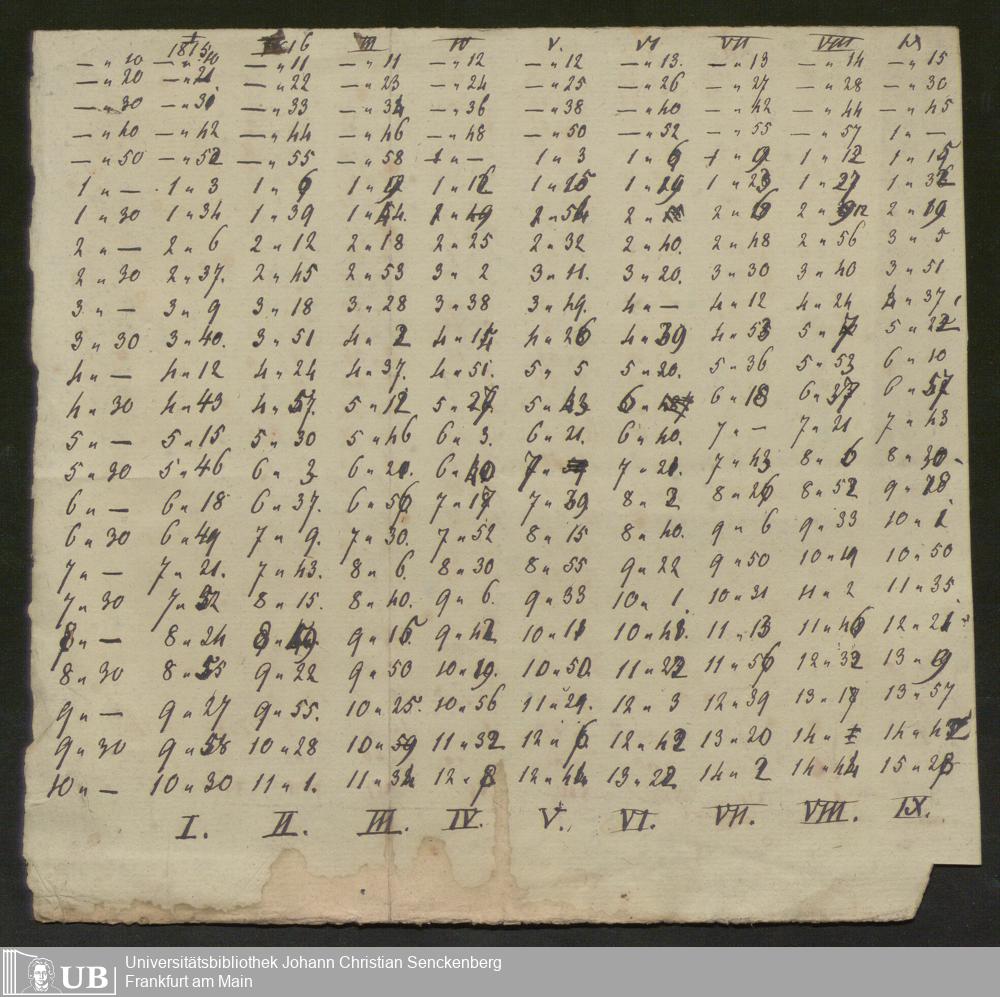 I 1815 16 III IV V. VI VII VIII IX
— " 10 — " 10 — " 11 — " 11 — " 12 — " 12 — " 13. — " 13 — " 14 — " 15
— " 20 — " 21 — " 22 — " 23 — " 24 — " 25 — " 26 — " 27 — " 28 — " 30
— " 30 — " 31 — " 33 — " 34 — " 36 — " 38 — " 40 — " 42 — " 44 — " 45
— " 40 — " 42 — " 44 — " 46 — " 48 — " 50 — " 52 — " 55 — " 57 1 " —
— " 50 — " 52 — " 55 — " 58 1 " — 1 " 3 1 " 6 1 " 9 1 " 12 1 " 15
1 " — 1 " 3 1 " 6 1 " 9 1 " 12 1 " 15 1 " 19 1 " 23 1 " 27 1 " 32
1 " 30 1 " 34 1 " 39 1 " 44. 1 " 49 1 " 54 2 " 2 " 6 2 " 12 2 " 19
2 " — 2 " 6 2 " 12 2 " 18 2 " 25 2 " 32 2 " 40. 2 " 48 2 " 56 3 " 5
2 " 30 2 " 37. 2 " 45 2 " 53 3 " 2 3 " 11. 3 " 20. 3 " 30 3 " 40 3 " 51
3 " — 3 " 9 3 " 18 3 " 28 3 " 38 3 " 49. 4 " — 4 " 12 4 " 24 4 " 37
3 " 30 3 " 40. 3 " 51 4 " 2 4 " 14 4 " 26 4 " 39 4 " 53 5 " 7 5 " 22
4 " — 4 " 12 4 " 24 4 " 37. 4 " 51. 5 " 5 5 " 20. 5 " 36 5 " 53 6 " 10
4 " 30 4 " 43 4 " 57. 5 " 12 5 " 27 5 " 43 6 " 6 " 18 6 " 37 6 " 57
5 " — 5 " 15 5 " 30 5 " 46 6 " 3. 6 " 21. 6 " 40. 7 " — 7 " 21 7 " 43
5 " 30 5 " 46 6 " 3 6 " 21. 6 " 40 7 " 7 " 21. 7 " 43 8 " 6 8 " 30
6 " — 6 " 18 6 " 37. 6 " 56 7 " 17 7 " 39 8 " 2 8 " 26 8 " 52 9 " 18
6 " 30 6 " 49 7 " 9. 7 " 30. 7 " 52 8 " 15 8 " 40. 9 " 6 9 " 33 10 " 1
7 " — 7 " 21. 7 " 43. 8 " 6. 8 " 30 8 " 55 9 " 22 9 " 50 10 " 19 10 " 50
7 " 30 7 " 52 8 " 15. 8 " 40. 9 " 6. 9 " 33 10 " 1. 10 " 31 11 " 2 11 " 35.
8 " — 8 " 24 8 " 49 9 " 15 9 " 42 10 " 11 10 " 41. 11 " 13 11 " 46 12 " 21
8 " 30 8 " 55 9 " 22 9 " 50 10 " 19. 10 " 50. 11 " 22 11 " 56 12 " 32 13 " 9
9 " — 9 " 27 9 " 55. 10 " 25. 10 " 56 11 " 29. 12 " 3 12 " 39 13 " 17 13 " 57
9 " 30 9 " 58 10 " 28 10 " 59 11 " 32 12 " 6. 12 " 42 13 " 20 14 " 14 " 42
10 " — 10 " 30 11 " 1. 11 " 34 12 " 8 12 " 44 13 " 22 14 " 2 14 " 44 15 " 28
I. II. III. IV. V. VI. VII. VIII. IX.
UB Universitätsbibliothek Johann Christian Senckenberg
Frankfurt am Main